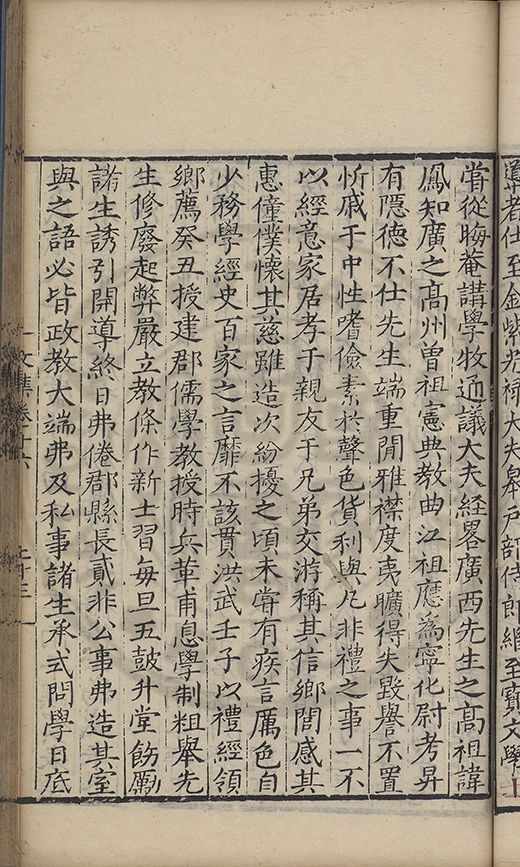 導者仕至金紫光祿大夫皋戶部侍郎維至寶文學士
嘗從晦菴講學牧通議大夫經畧廣西先生之高祖諱
鳳知廣之高州曾祖憲典教曲江祖應為寧化尉考昇
有隱德不仕先生端重閒雅襟度夷曠得失毀譽不置
忻戚于中性嗜儉素於聲色貨利與凡非禮之事一不
以經意家居孝于親友于兄弟交游稱其信鄉閭感其
惠僮僕懷其慈雖造次紛擾之頃未嘗有疾言厲色自
少務學經史百家之言靡不該貫洪武壬子以禮經領
鄉薦癸丑授建郡儒學教授時兵革甫息學制粗舉先
生修廢起弊嚴立教條作新士習每旦五鼓升堂飭勵
諸生誘引開導終日弗倦郡縣長貳非公事弗造其室
與之語必皆政教大端弗及私事諸生承式問學日底
文集卷十六